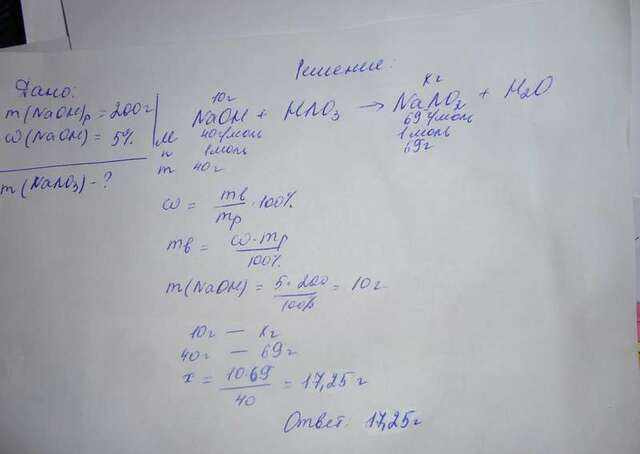 Решение:
Дано:
m(NaOH)р = 200г
ω(NaOH) = 5%
m(NaNO3) - ?
10г xг
NaOH + HNO3 → NaNO2 + H2O
M 40г/моль 69г/моль
n 1моль 1моль
m 40г 69г
ω = mв/mр · 100%
mв = ω·mр/100%
m(NaOH) = 5·200/100% = 10г
10г — xг
40г — 69г
x = 10·69/40 = 17,25г
Ответ: 17,25г